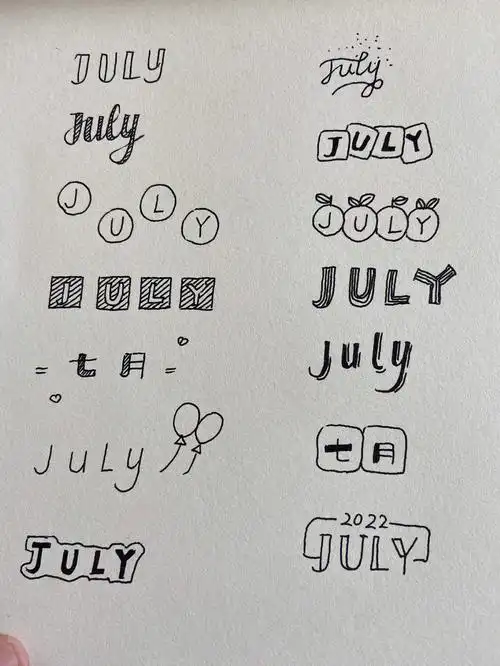 JULY
July
July
JULY
JULY
JULY
JULY
JULY
七月
July
JuLy
七月
JULY
2022
JULY